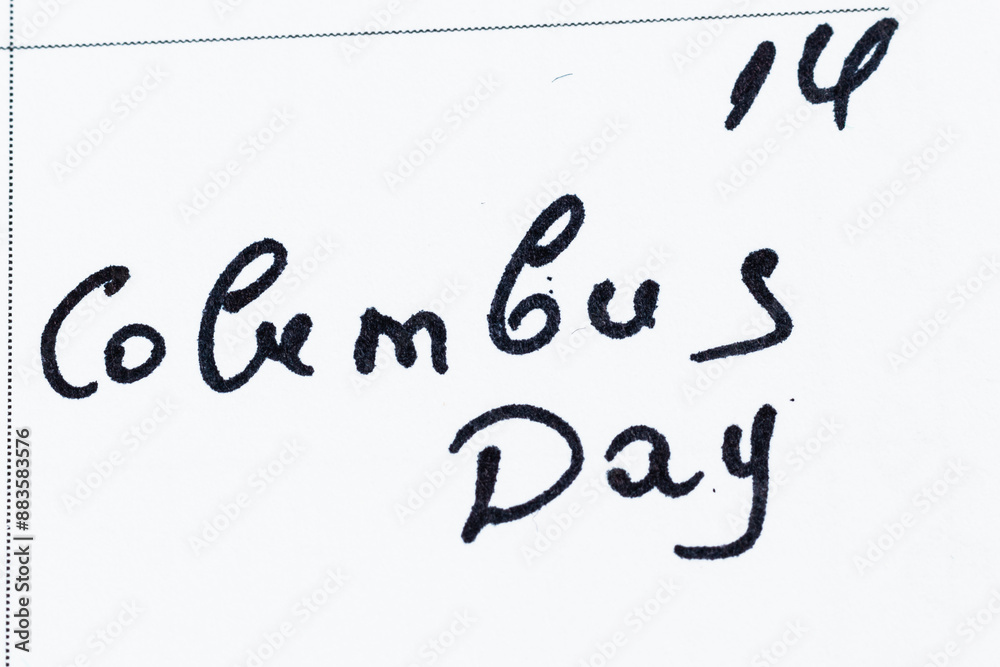 14
Columbus
Day
Adobe Stock | #883583576